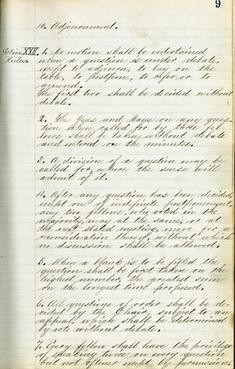 9
10. Adjournment.
Section XXII. 1. No motion shall be entertained
Rules when a question is under debate,
except to adjourn, to lay on the
table, to postpone, to refer or to
amend.
The first two shall be decided without
debate.
2. The Yeas and Nays on any ques-
tion when called for by three fel-
lows shall be taken without debate
and entered on the minutes.
3. A division of a question may be
called for, where the sense will
admit of it.
4. After any question has been decided,
except one of indefinite postponement,
any two fellows, who voted in the
majority may at the same, or at
the next stated meeting, move for a
reconsideration thereof without which
no discussion shall be allowed.
5. When a blank is to be filled the
question shall be first taken on the
highest number, the greatest sum
or the longest time proposed.
6. All questions of order shall be de-
cided by the Chair, subject to an
appeal, which shall be determined
by vote without debate.
7. Every fellow shall have the privilege
of speaking twice on every question
but not oftener except by permission